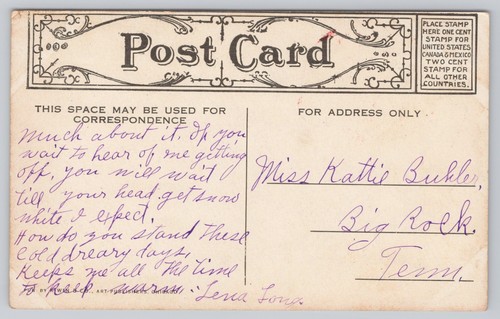 Post Card
PLACE STAMP
HERE ONE CENT
STAMP FOR
UNITED STATES
CANADA & MEXICO
TWO CENT
STAMP FOR
ALL OTHER
COUNTRIES.
THIS SPACE MAY BE USED FOR
CORRESPONDENCE
FOR ADDRESS ONLY
much about it. If you
wait to hear of me getting
off, you will wait
till your head get snow
white I expect.
How do you stand these
cold dreary days,
Keeps me all the time
to keep warm. Lena
Miss Kattie Buhler,
Big Rock.
Tenn.